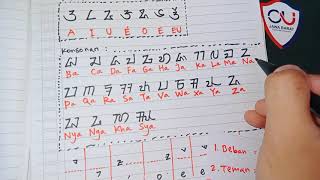 ᮃ ᮄ ᮅ ᮆ ᮇ ᮈ ᮉ
A I U É O E EU
Konsonan :
ᮘ ᮎ ᮓ ᮖ ᮌ ᮠ ᮏ ᮊ ᮜ ᮙ ᮔ
Ba Ca Da Fa Ga Ha Ja Ka La Ma Na
ᮕ ᮋ ᮛ ᮞ ᮒ ᮗ ᮝ ᮟ ᮚ ᮐ
Pa Qa Ra Sa Ta Va Wa Xa Ya Za
ᮑ ᮍ ᮮ ᮯ
Nya Nga Kha Sya
1. Beban =
2. Teman =
JAWA BARAT